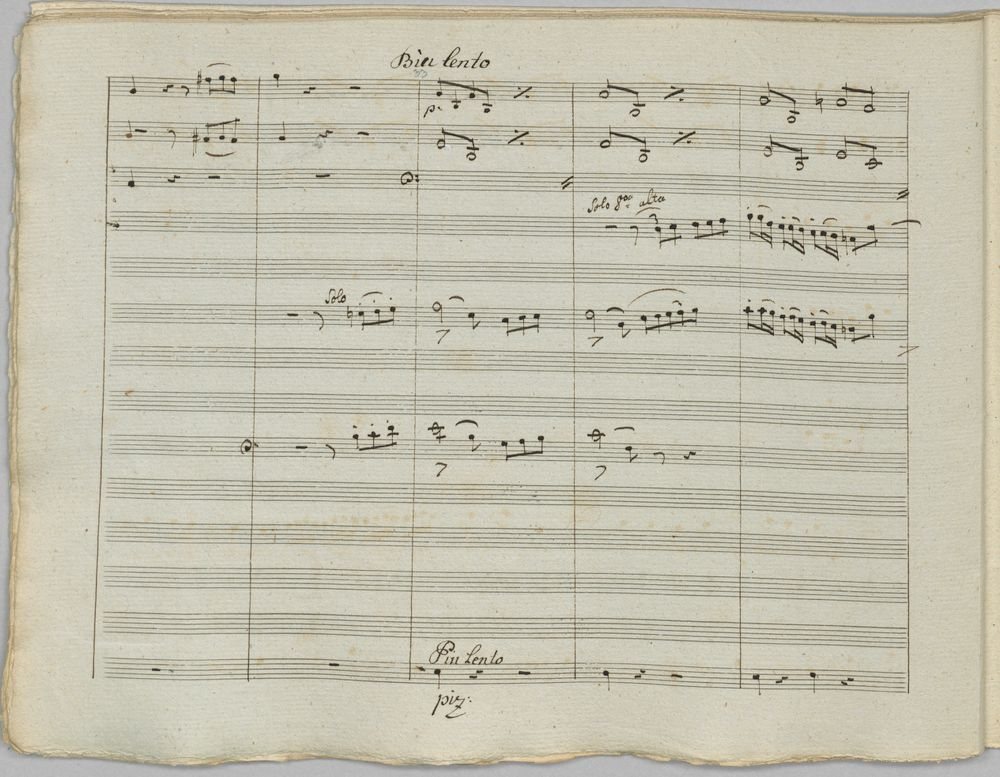 Biu lento
p:
Solo 8va alta
3
Solo
Piu lento
piz: